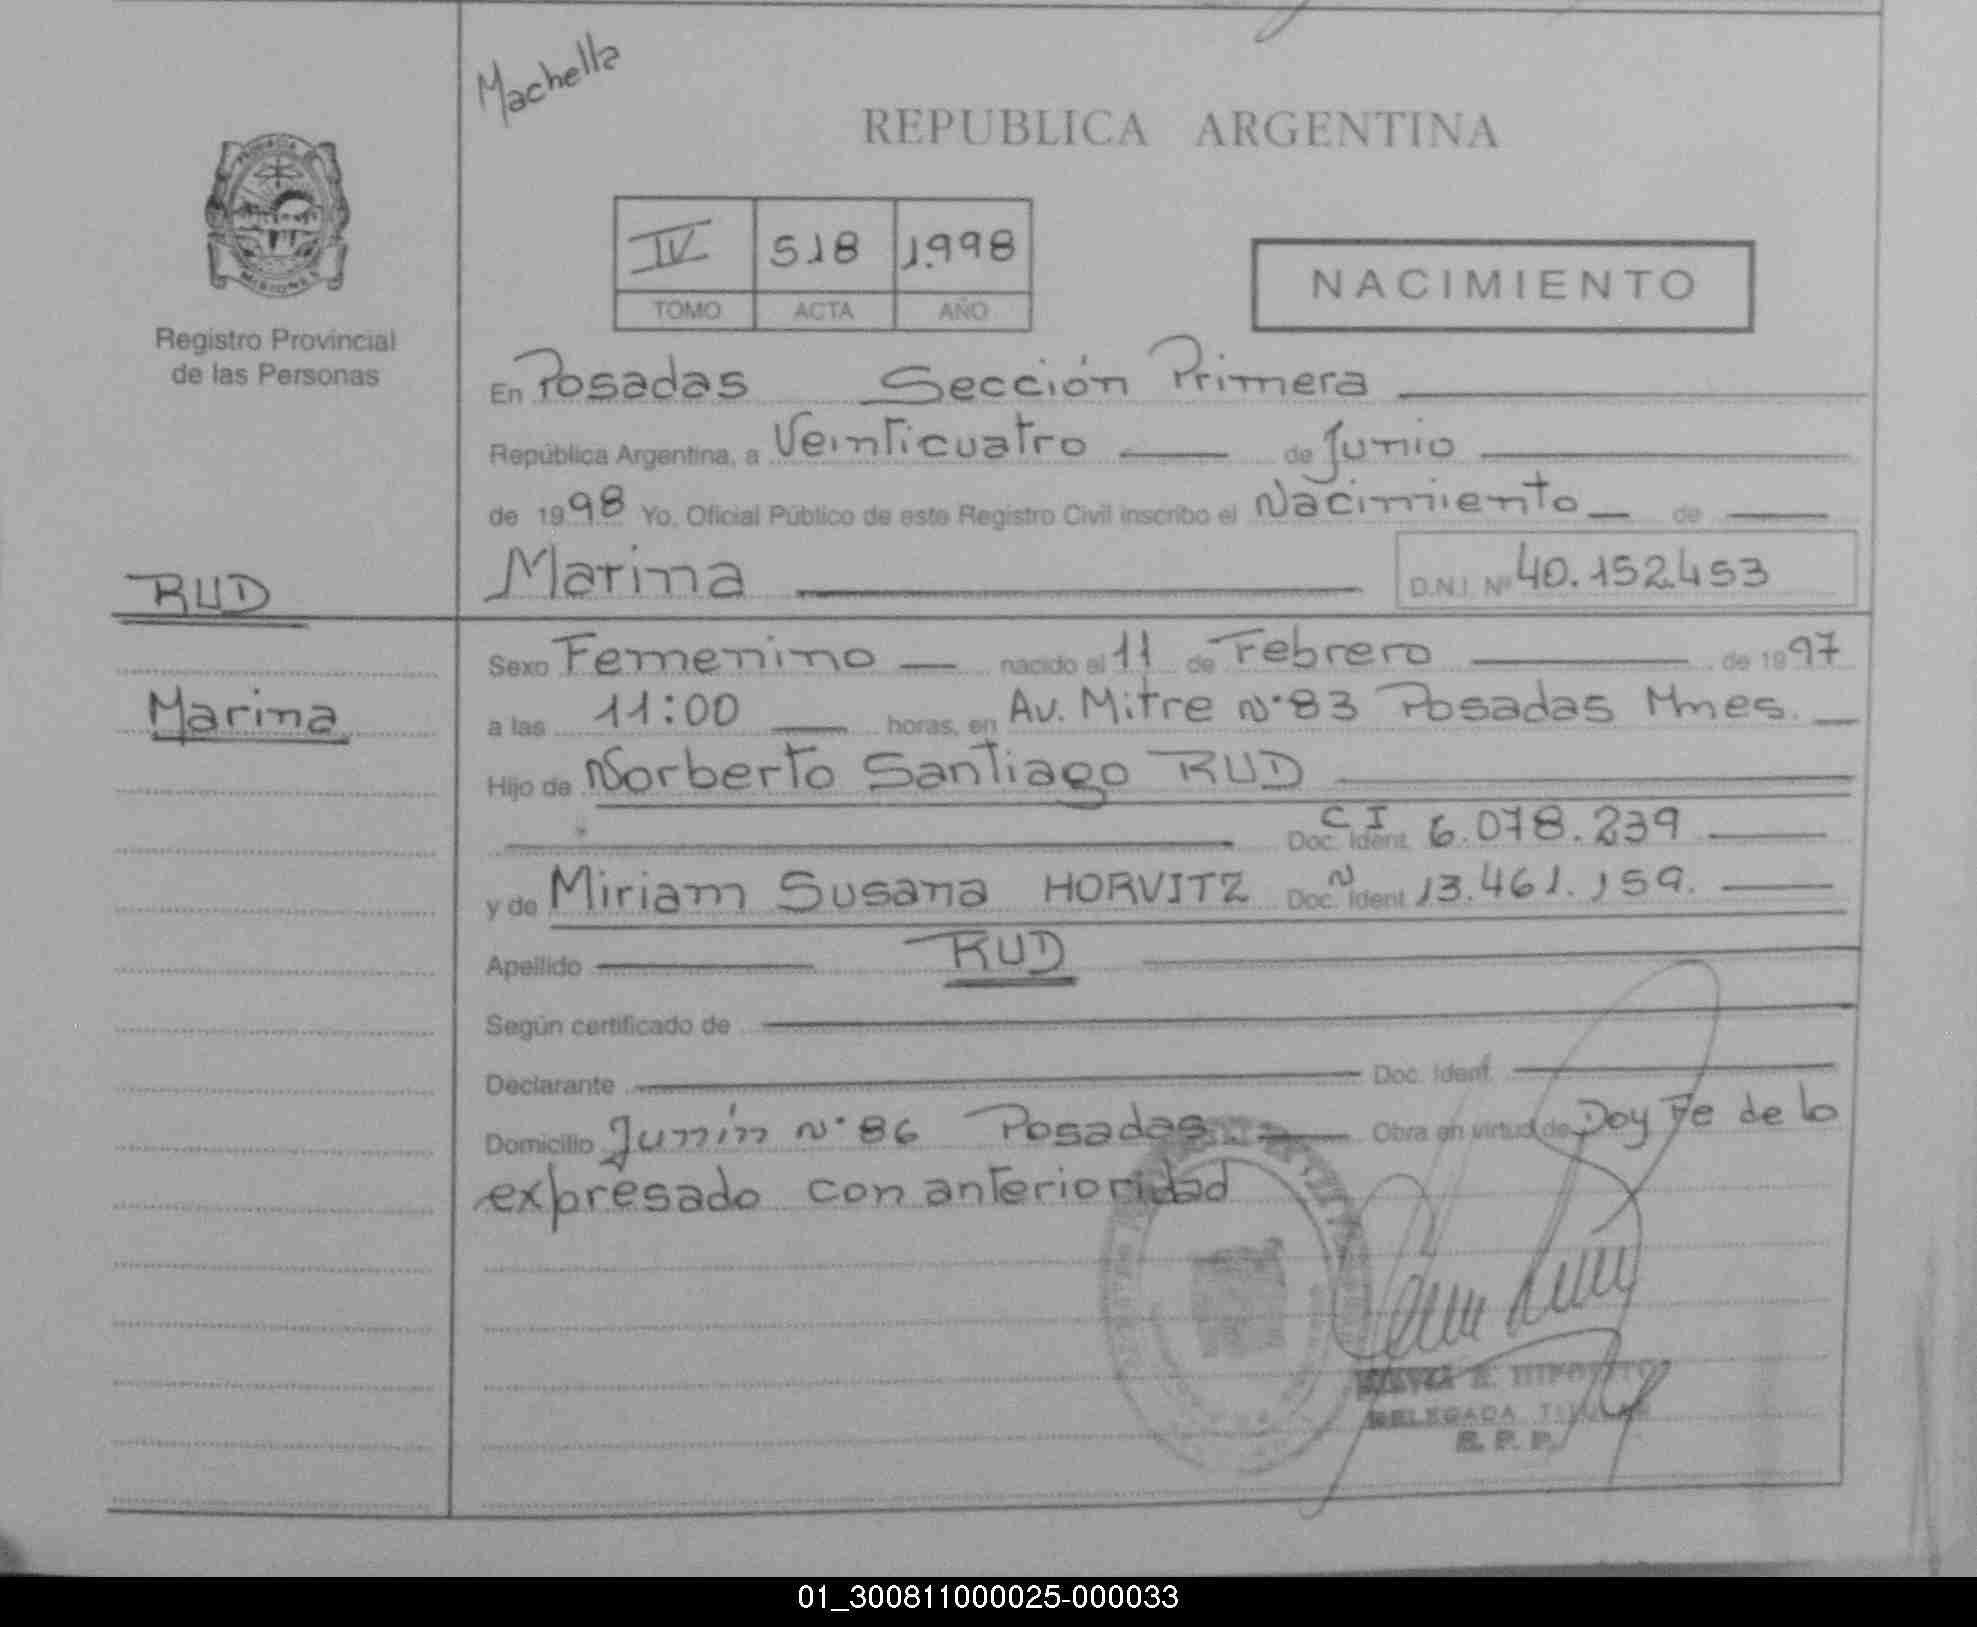 Machella
REPUBLICA ARGENTINA
IV 518 1.998
TOMO ACTA AÑO
NACIMIENTO
MISIONES
Registro Provincial
de las Personas
En Posadas Sección Primera
República Argentina, a Veinticuatro de Junio
de 1998 Yo, Oficial Público de este Registro Civil inscribo el Nacimiento de
RUD
Marina D.N.I. Nº 40.152.453
Sexo Femenino nacido el 11 de Febrero de 1997
Marina
a las 11:00 horas, en Av. Mitre Nº 83 Posadas Mnes.
Hijo de Norberto Santiago RUD
Doc. Ident. CI 6.078.239
y de Miriam Susana HORVITZ Doc. Ident. N 13.461.159.
Apellido RUD
Según certificado de
Declarante Doc. Ident.
Domicilio Junín Nº 86 Posadas Obra en virtud de Doy Fe de lo
expresado con anterioridad
DELEGADA TITULAR
R. P. P.
01_300811000025-000033